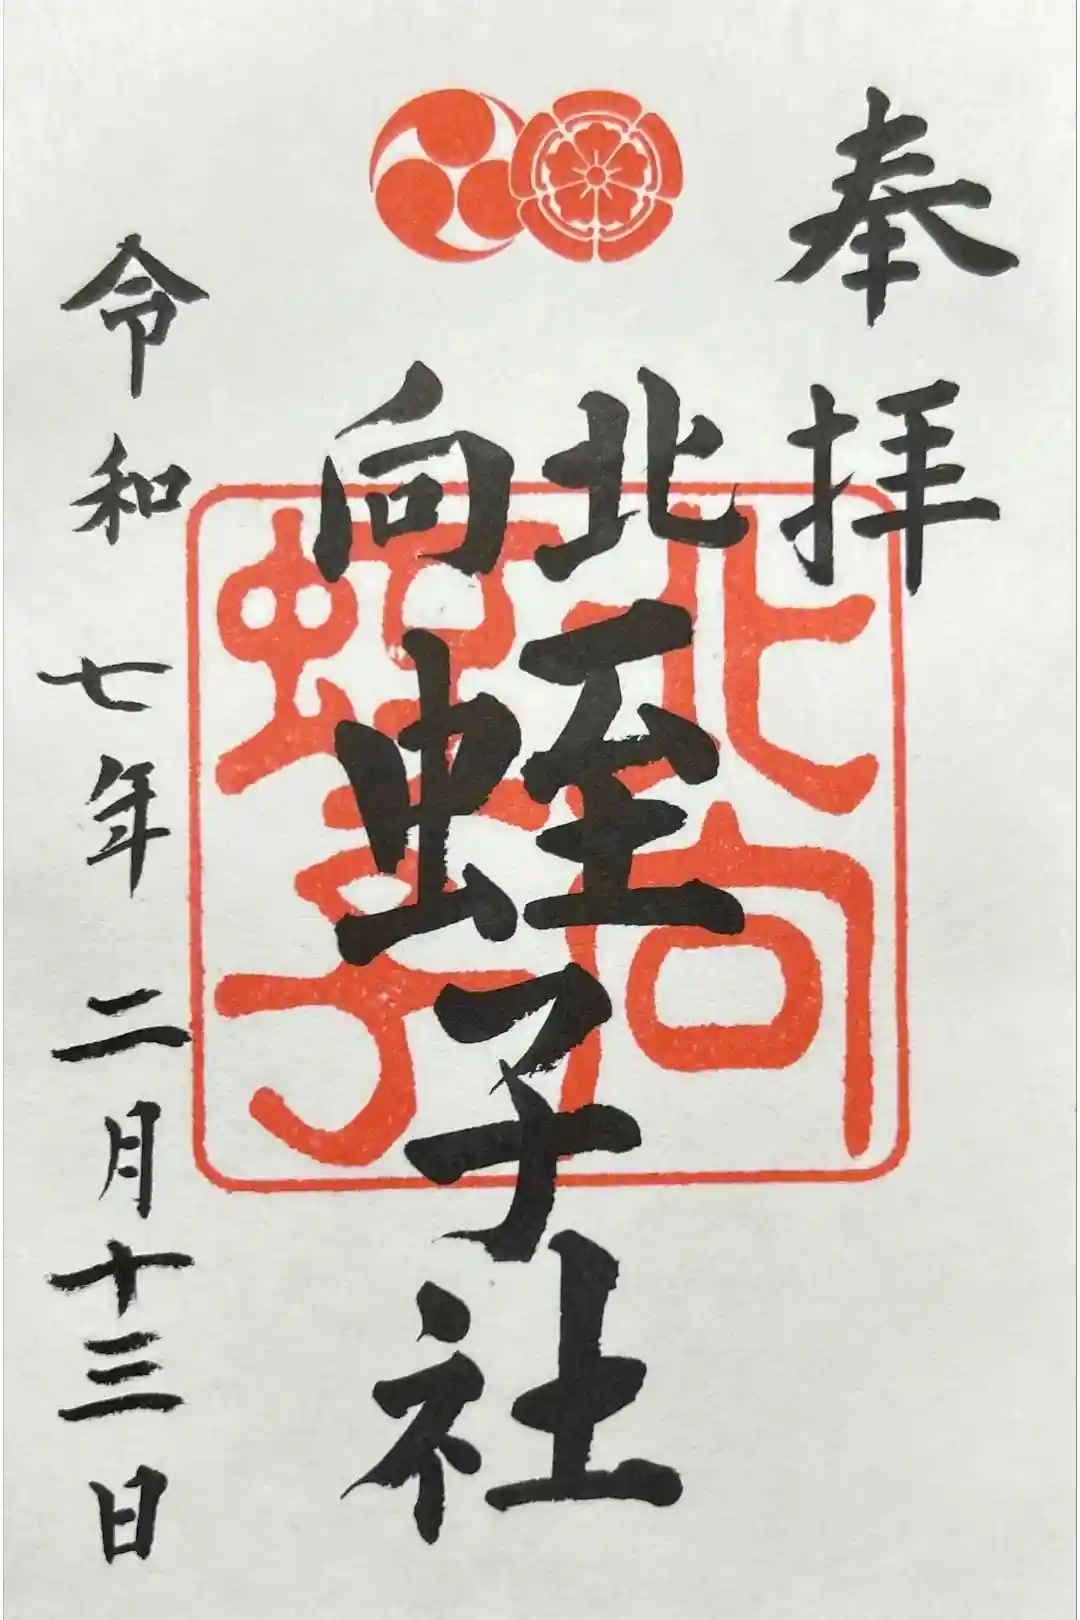 奉拝
北向
蛭子社
北向
蛭子
令和七年二月十三日